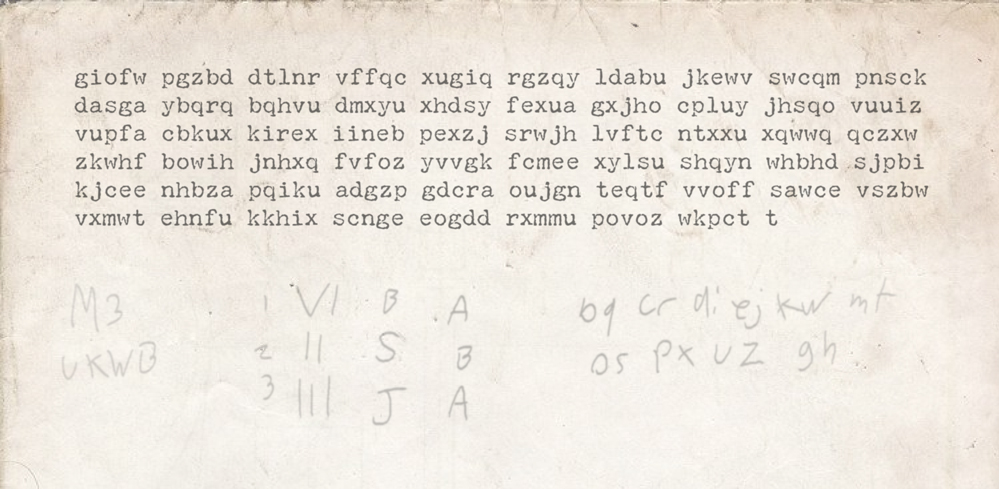 giofw pgzbd dtlnr vffqc xugiq rgzqy ldabu jkewv swcqm pnsck
dasga ybqrq bqhvu dmxyu xhdsy fexua gxjho cpluy jhsqo vuuiz
vupfa cbkux kirex iineb pexzj srwjh lvftc ntxxu xqwwq qczxw
zkwhf bowih jnhxq fvfoz yvvgk fcmee xylsu shqyn whbhd sjpbi
kjcee nhbza pqiku adgzp gdcra oujgn teqtf vvoff sawce vszbw
vxmwt ehnfu kkhix scnge eogdd rxmmu povoz wkpct t
M3 1 VI B A bq cr di ej kw mt
UKWB 2 II S B os px uz gh
3 III J A